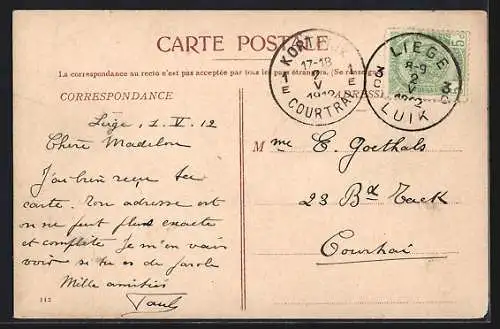 CARTE POSTALE
La correspondance au recto n'est pas acceptée par tous les pays étrangers. (Se renseigner
CORRESPONDANCE
ADRESSE
KORTRIJK
17-18
2
V
1912
1
E
1
E
COURTRAI
LIEGE
8-9
2
V
1912
3
C
3
C
LUIK
5c
Liége, 1. V. 12
Chère Madelon
J'ai bien reçu ta
carte. Ton adresse est
on ne peut plus exacte
et complète. Je m'en vais
voir si tu es de parole
Mille amitiés
Paul
Mme E. Goethals
23 Bd Tack
Courtrai
112